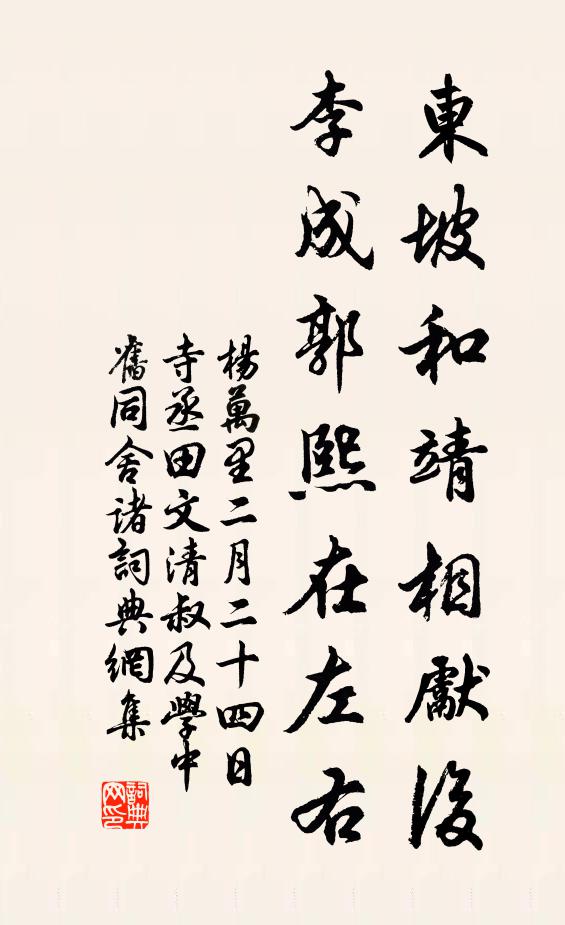 東坡和靖相獻後
李成郭熙在左右
楊萬里二月二十四日
寺丞田文清叔及學中
舊同舍諸詞典網集
詞典
网印